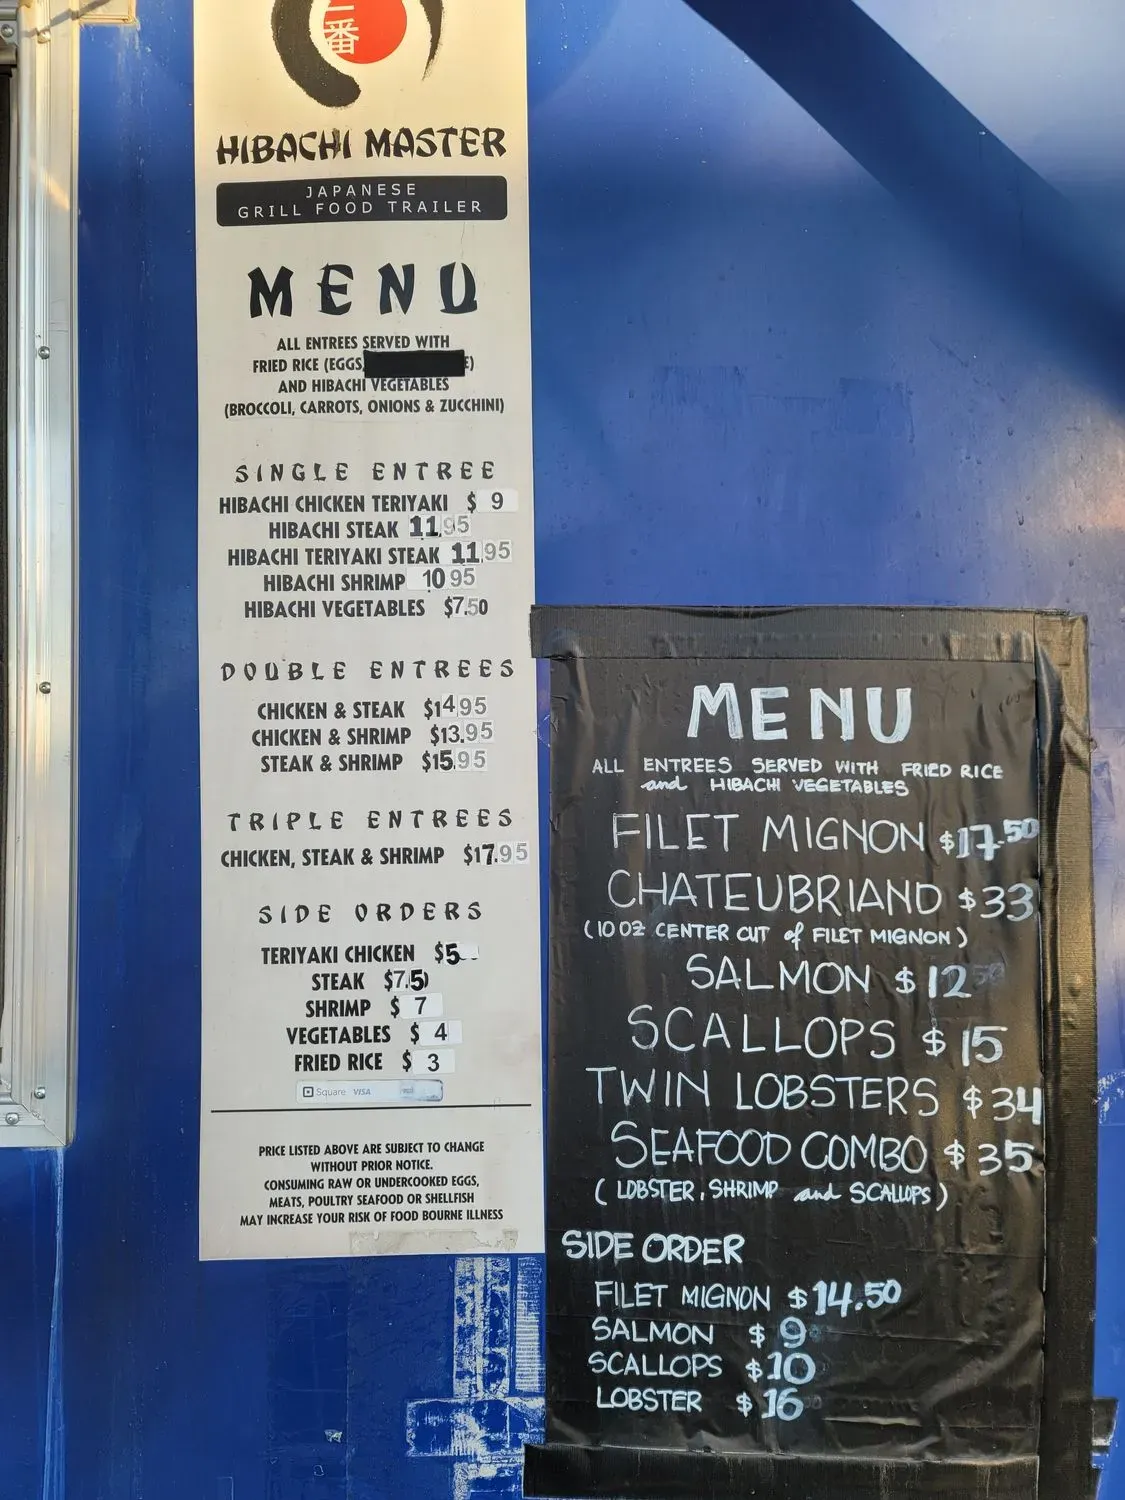 一番
HIBACHI MASTER
JAPANESE
GRILL FOOD TRAILER
MENU
ALL ENTREES SERVED WITH
FRIED RICE (EGGS, E)
AND HIBACHI VEGETABLES
(BROCCOLI, CARROTS, ONIONS & ZUCCHINI)
SINGLE ENTREE
HIBACHI CHICKEN TERIYAKI $ 9
HIBACHI STEAK 11.95
HIBACHI TERIYAKI STEAK 11.95
HIBACHI SHRIMP 10 95
HIBACHI VEGETABLES $7.50
DOUBLE ENTREES
CHICKEN & STEAK $14.95
CHICKEN & SHRIMP $13.95
STEAK & SHRIMP $15.95
TRIPLE ENTREES
CHICKEN, STEAK & SHRIMP $17.95
SIDE ORDERS
TERIYAKI CHICKEN $5
STEAK $7.50
SHRIMP $ 7
VEGETABLES $ 4
FRIED RICE $ 3
Square VISA
PRICE LISTED ABOVE ARE SUBJECT TO CHANGE
WITHOUT PRIOR NOTICE.
CONSUMING RAW OR UNDERCOOKED EGGS,
MEATS, POULTRY SEAFOOD OR SHELLFISH
MAY INCREASE YOUR RISK OF FOOD BOURNE ILLNESS
MENU
ALL ENTREES SERVED WITH FRIED RICE
and HIBACHI VEGETABLES
FILET MIGNON $17.50
CHATEUBRIAND $33
(10 OZ CENTER CUT of FILET MIGNON)
SALMON $12
SCALLOPS $15
TWIN LOBSTERS $34
SEAFOOD COMBO $35
(LOBSTER, SHRIMP and SCALLOPS)
SIDE ORDER
FILET MIGNON $14.50
SALMON $9
SCALLOPS $10
LOBSTER $16